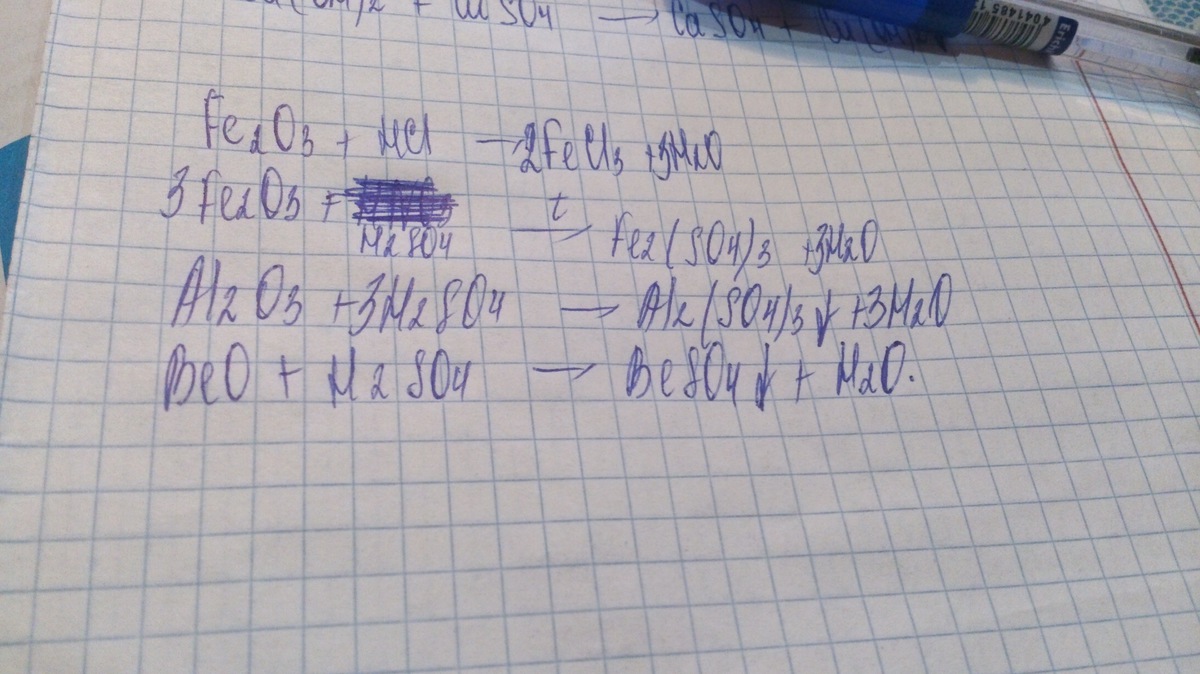 + CuSO4 → CaSO4 +
Fe2O3 + HCl → 2FeCl3 + 3H2O
3Fe2O3 + H2SO4 t→ Fe2(SO4)3 + 3H2O
Al2O3 + 3H2SO4 → Al2(SO4)3↓ + 3H2O
BeO + H2SO4 → BeSO4↓ + H2O.